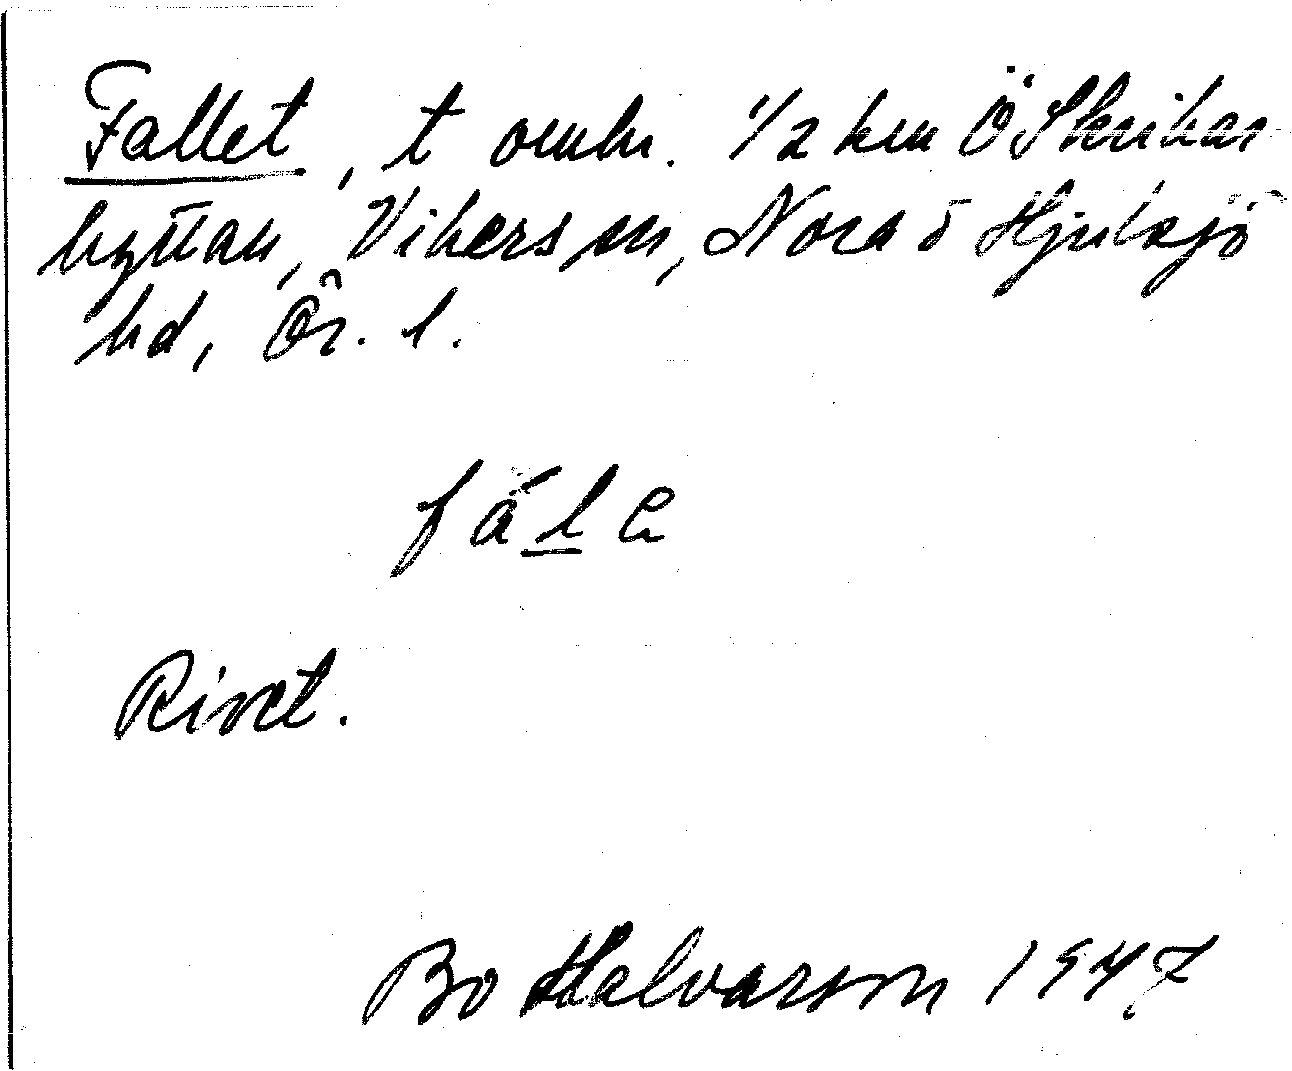 Fallet, t ombr. 1/2 km Ö Skrikar
hyttan, Vikers sn, Nora o Hjulsjö
hd, Ör. l.
fálе
Rivet.
Bo Halvarson 1947